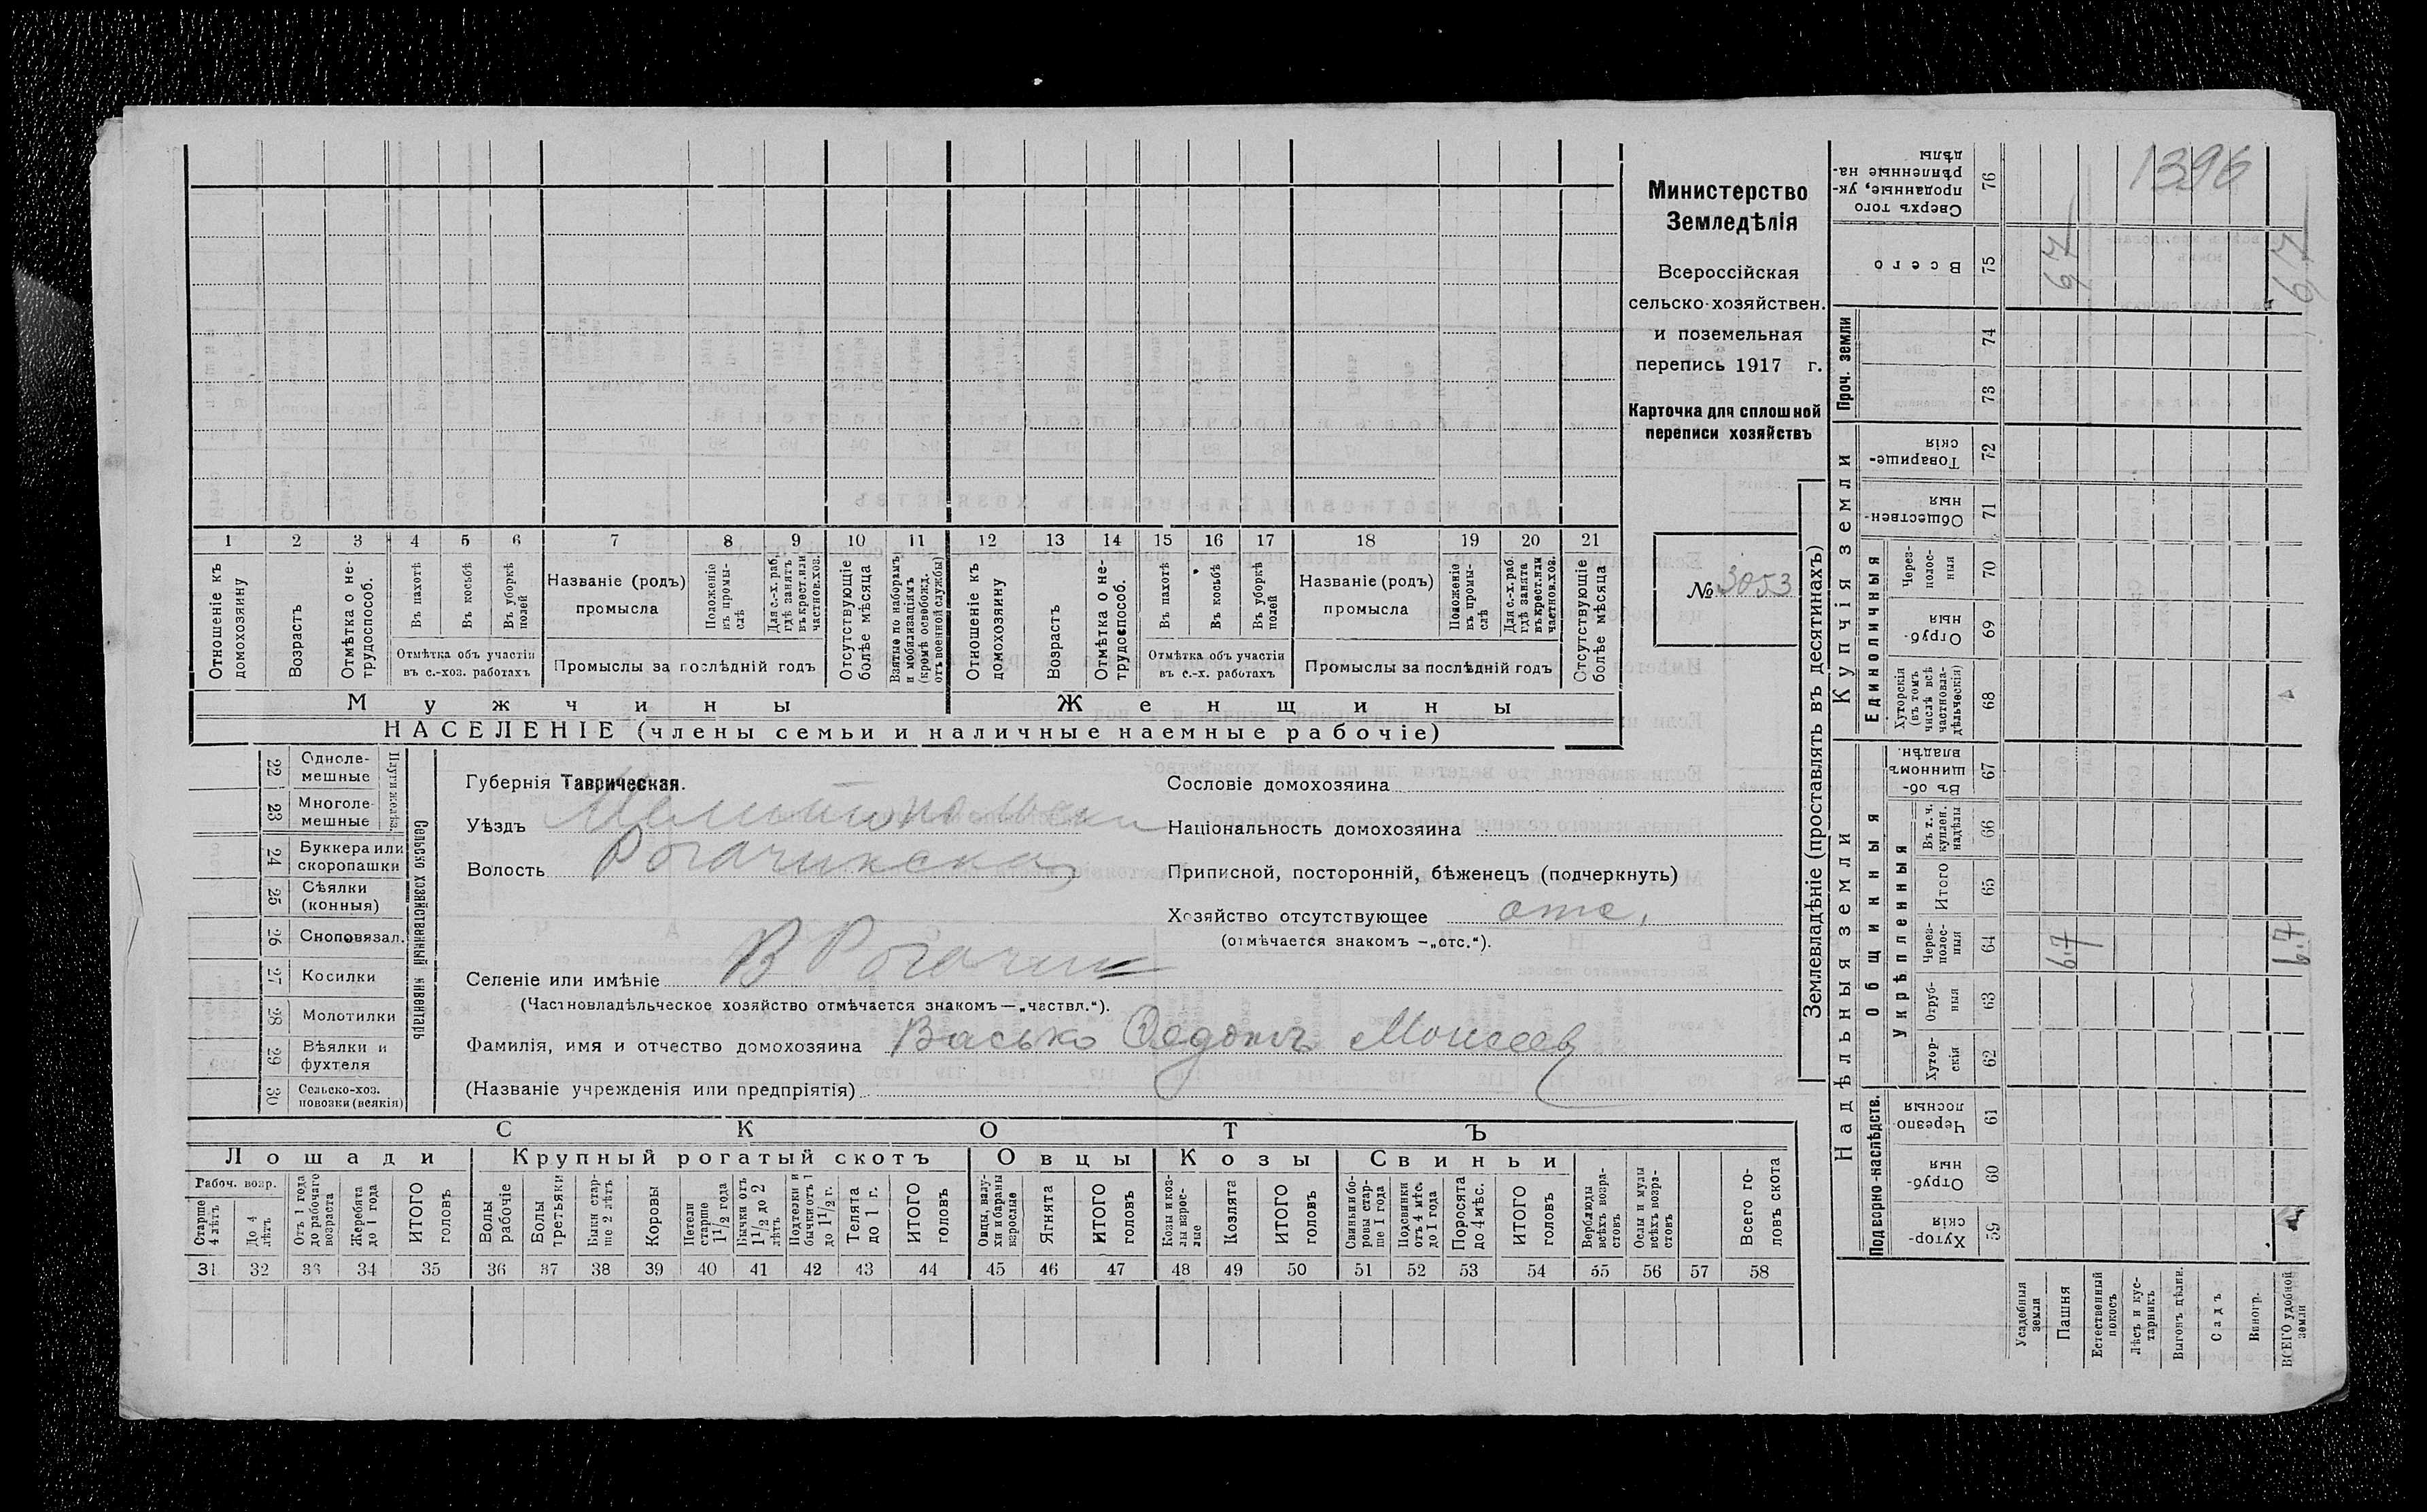 Министерство
Земледѣлія
Всероссійская
сельско-хозяйствен.
и поземельная
перепись 1917 г.
Карточка для сплошной
переписи хозяйствъ
№ 3053
1 2 3 4 5 6 7 8 9 10 11 12 13 14 15 16 17 18 19 20 21
Отношеніе къ домохозяину
Возрастъ
Отмѣтка о не-трудоспособ.
Въ пахотѣ
Въ косьбѣ
Въ уборкѣ полей
Отмѣтка объ участіи
въ с.-хоз. работахъ
Названіе (родъ)
промысла
Положеніе въ промы-слѣ
Для с.-х. раб. гдѣ занятъ въ крест. или частнов. хоз.
Промыслы за послѣдній годъ
Отсутствующіе болѣе мѣсяца
Взятые по наборамъ и мобилизаціямъ (кромѣ освобожд. отъ военной службы)
Отношеніе къ домохозяину
Возрастъ
Отмѣтка о не-трудоспособ.
Въ пахотѣ
Въ косьбѣ
Въ уборкѣ полей
Отмѣтка объ участіи
въ с.-х. работахъ
Названіе (родъ)
промысла
Положеніе въ промы-слѣ
Для с.-х. раб. гдѣ занята въ крест. или частнов. хоз.
Промыслы за послѣдній годъ
Отсутствующіе болѣе мѣсяца
Мужчины
Женщины
НАСЕЛЕНІЕ (члены семьи и наличные наемные рабочіе)
Сельско хозяйственный инвентарь
Плуги желѣз.
22 Одноле-мешные
23 Многоле-мешные
24 Буккера или скоропашки
25 Сѣялки (конныя)
26 Сноповязал.
27 Косилки
28 Молотилки
29 Вѣялки и фухтеля
30 Сельско-хоз. повозки (всякія)
Губернія Таврическая.
Уѣздъ Мелитопольски
Волость Рогачикская
Селеніе или имѣніе В Рогачик
(Частновладѣльческое хозяйство отмѣчается знакомъ—„частвл.“).
Фамилія, имя и отчество домохозяина Васько Федотъ Моисеев
(Названіе учрежденія или предпріятія)
Сословіе домохозяина
Національность домохозяина
Приписной, посторонній, бѣженецъ (подчеркнуть)
Хозяйство отсутствующее отс.
(отмѣчается знакомъ —„отс.“).
СКОТЪ
Лошади
Крупный рогатый скотъ
Овцы
Козы
Свиньи
Рабоч. возр.
Старше 4 лѣтъ
До 4 лѣтъ
Отъ 1 года до рабочаго возраста
Жеребята до 1 года
ИТОГО головъ
Волы рабочіе
Волы третьяки
Быки стар-ше 2 лѣтъ
Коровы
Нетели старше 1 1/2 года
Бычки отъ 1 1/2 до 2 лѣтъ
Подтелки и бычки отъ 1 до 1 1/2 г.
Телята до 1 г.
ИТОГО головъ
Овцы, валу-хи и бараны взрослые
Ягнята
ИТОГО головъ
Козы и коз-лы взрос-лые
Козлята
ИТОГО головъ
Свиньи и бо-ровы стар-ше 1 года
Подсвинки отъ 4 мѣс. до 1 года
Поросята до 4 мѣс.
ИТОГО головъ
Верблюды всѣхъ возра-стовъ
Ослы и мулы всѣхъ возра-стовъ
Всего го-ловъ скота
31 32 33 34 35 36 37 38 39 40 41 42 43 44 45 46 47 48 49 50 51 52 53 54 55 56 57 58
Землевладѣніе (проставлять въ десятинахъ)
Надѣльныя земли
Купчія земли
Проч. земли
Подворно-наслѣдств.
Общинныя
Укрѣпленныя
Единоличныя
Хутор-скія 59
Отруб-ныя 60
Черезпо лосныя 61
Хутор-скія 62
Отруб-ныя 63
Через-полос-ныя 64
Итого 65
Въ т. ч. куплен. надѣлы 66
Въ об-щинномъ владѣн. 67
Хуторскія (въ томъ числѣ всѣ частновла-дѣльческія) 68
Отруб-ныя 69
Через-полос-ныя 70
Обществен-ныя 71
Товарище-скія 72
73
74
Всего 75
Сверхъ того проданные, ук-рѣпленные на-дѣлы 76
Усадебныя земли
Пашня
Естественный покосъ
Лѣсъ и кус-тарникъ
Выгонъ дѣлян.
Садъ
Виногр.
ВСЕГО удобной земли
6.7
6.7
67
67
1396